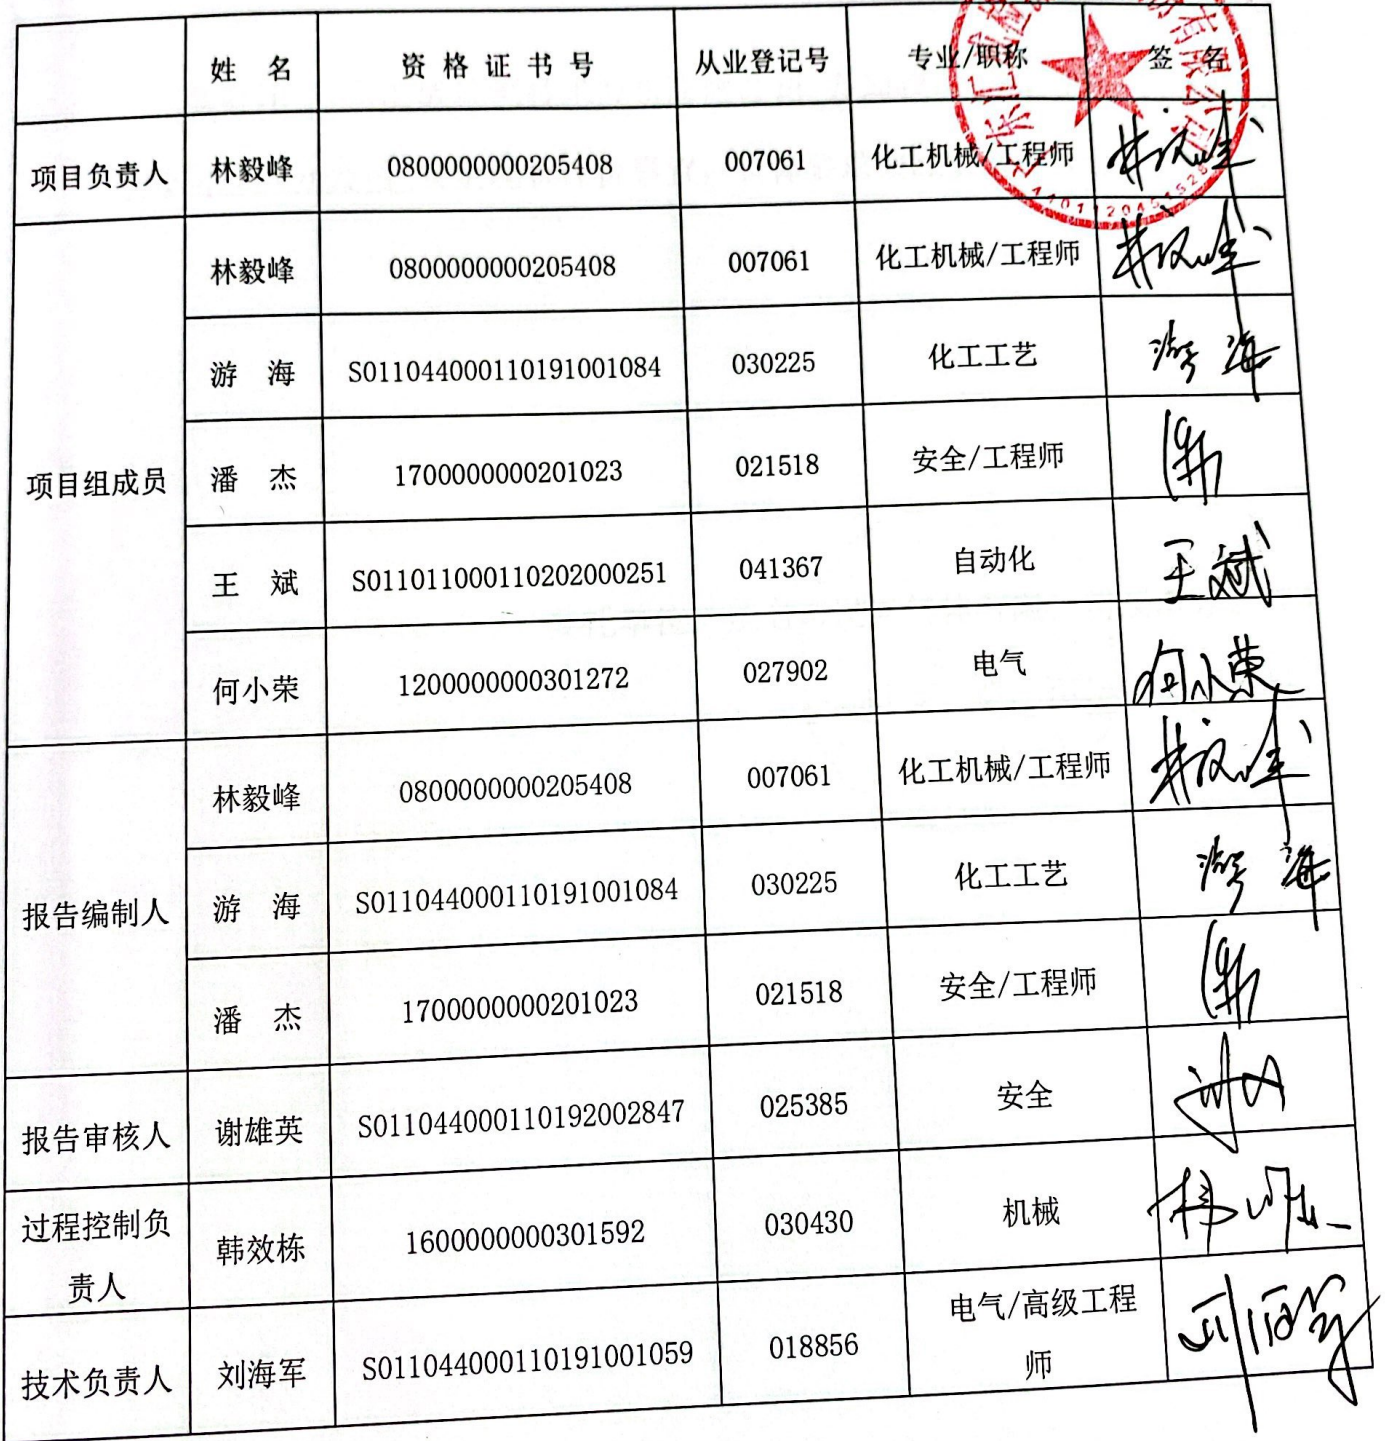 姓 名 资格证书号 从业登记号 专业/职称 签 名
项目负责人 林毅峰 0800000000205408 007061 化工机械/工程师 林毅峰
项目组成员 林毅峰 0800000000205408 007061 化工机械/工程师 林毅峰
游 海 S011044000110191001084 030225 化工工艺 游海
潘 杰 1700000000201023 021518 安全/工程师
王 斌 S011011000110202000251 041367 自动化 王斌
何小荣 1200000000301272 027902 电气 何小荣
报告编制人 林毅峰 0800000000205408 007061 化工机械/工程师 林毅峰
游 海 S011044000110191001084 030225 化工工艺 游海
潘 杰 1700000000201023 021518 安全/工程师
报告审核人 谢雄英 S011044000110192002847 025385 安全
过程控制负
责人 韩效栋 1600000000301592 030430 机械
技术负责人 刘海军 S011044000110191001059 018856 电气/高级工程
师 刘海军